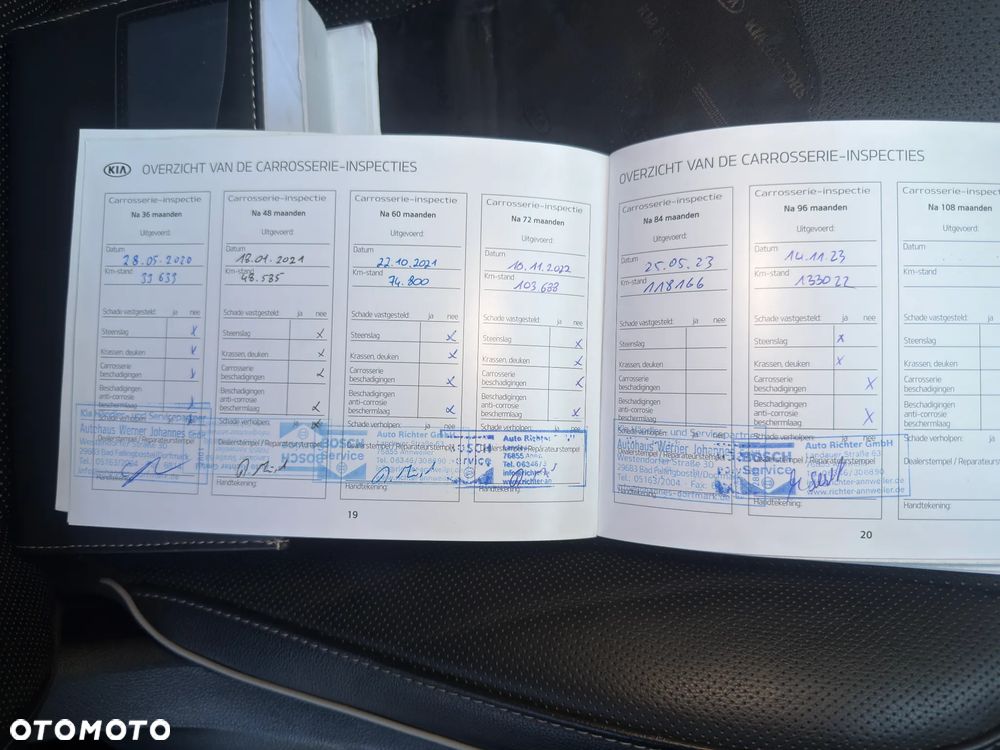 KIA OVERZICHT VAN DE CARROSSERIE-INSPECTIES
Carrosserie-inspectie
Na 36 maanden
Uitgevoerd:
Datum
28.05.2020
Km-stand
33 633
Schade vastgesteld: ja nee
Steenslag x
Krassen, deuken
Carrosserie
beschadigingen
Beschadigingen
anti-corrosie
beschermlaag
Schade verholpen:
Kia Händler- und Servicepartner
Autohaus Werner Johannes GmbH
Westendorfer Straße 30
29683 Bad Fallingbostel/Dorfmark
Carrosserie-inspectie
Na 48 maanden
Uitgevoerd:
Datum
18.01.2021
Km-stand
48.585
Schade vastgesteld: ja nee
Steenslag x
Krassen, deuken x
Carrosserie
beschadigingen x
Beschadigingen
anti-corrosie
beschermlaag x
Schade verholpen: x
Dealerstempel / Reparateurstempel
Handtekening:
Carrosserie-inspectie
Na 60 maanden
Uitgevoerd:
Datum
22.10.2021
Km-stand
74.800
Schade vastgesteld: ja nee
Steenslag x
Krassen, deuken x
Carrosserie
beschadigingen x
Beschadigingen
anti-corrosie
beschermlaag x
BOSCH
Service
Auto Richter GmbH
Landauer Straße 63
76855 Annweiler
Handtekening:
Carrosserie-inspectie
Na 72 maanden
Uitgevoerd:
Datum
10.11.2022
Km-stand
103.688
Schade vastgesteld: ja nee
Steenslag x
Krassen, deuken x
Carrosserie
beschadigingen x
Beschadigingen
anti-corrosie
beschermlaag x
BOSCH
Service
Auto Richter
76855
Handtekening:
19
OVERZICHT VAN DE CARROSSERIE-INSPECTIES
Carrosserie-inspectie
Na 84 maanden
Uitgevoerd:
Datum
25.05.23
Km-stand
118166
Schade vastgesteld: ja nee
Steenslag
Krassen, deuken
Carrosserie
beschadigingen
Beschadigingen
anti-corrosie
beschermlaag
Schade verholpen:
Kia Händler- und Servicepartner
Autohaus Werner Johannes
Westendorfer Straße 30
29683 Bad Fallingbostel/Dorfmark
Tel. 05163/2004
Handtekening:
Carrosserie-inspectie
Na 96 maanden
Uitgevoerd:
Datum
14.11.23
Km-stand
133022
Schade vastgesteld: ja nee
Steenslag x
Krassen, deuken x
Carrosserie
beschadigingen x
Beschadigingen
anti-corrosie
beschermlaag x
BOSCH
Service
Auto Richter GmbH
Landauer Straße 63
www.richter-annweiler.de
Handtekening:
Carrosserie-inspectie
Na 108 maanden
Datum
Km-stand
Schade vastgesteld:
Steenslag
Krassen, deuken
Carrosserie
beschadigingen
Beschadigingen
anti-corrosie
beschermlaag
Schade verholpen:
Dealerstempel / Reparateurs
Handtekening:
20
OTOMOTO